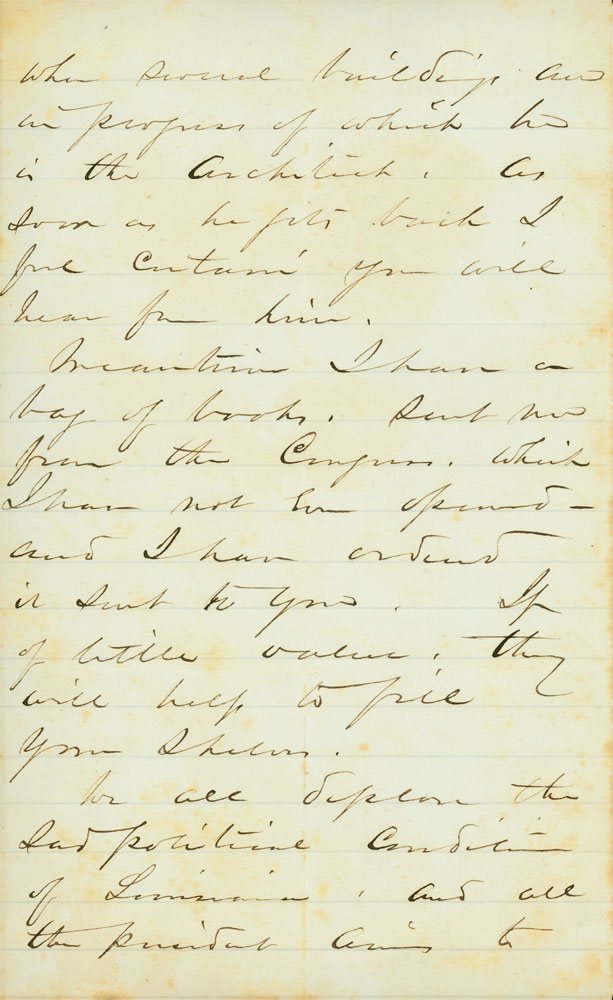 when several buildings are
in progress of which he
is the Architect. As
soon as he gets back I
feel certain you will
hear from him.
Meantime I have a
bag of books. sent me
from the Congress. which
I have not even opened -
and I have ordered
it sent to you. If
of little value. they
will help to fill
your shelves.
We all deplore the
sad political condition
of Louisiana. and all
the president aims to